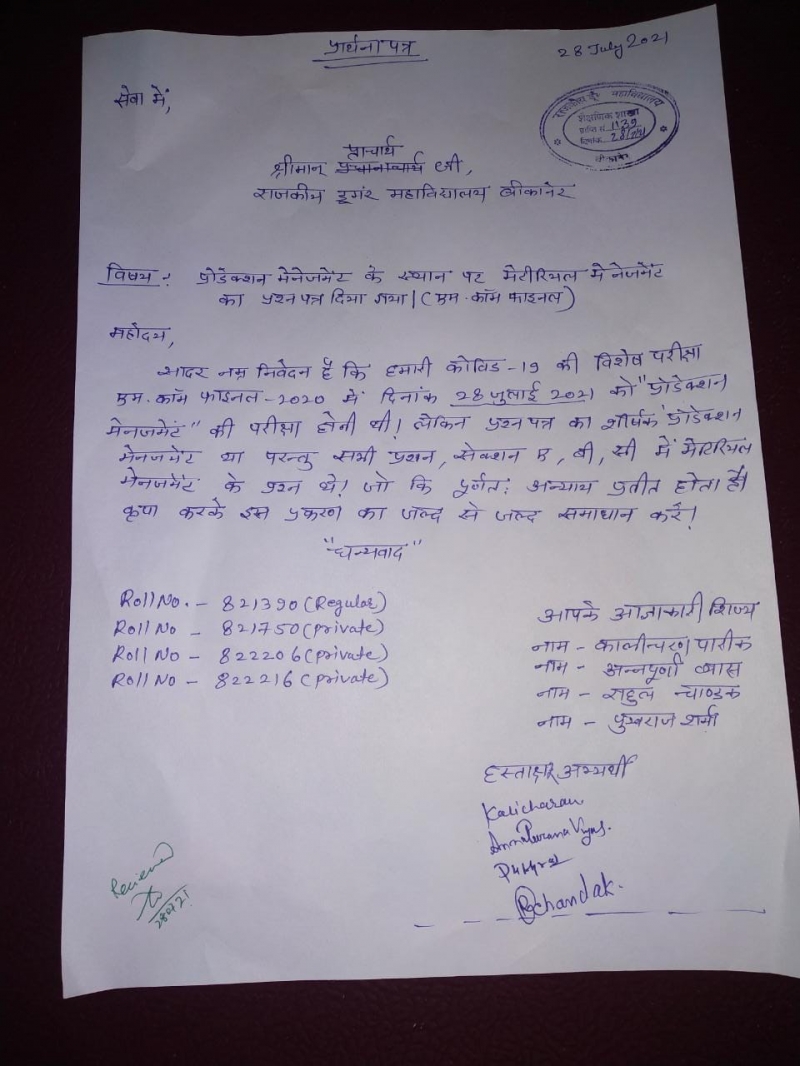 प्रार्थना पत्र
28 July 2021
सेवा में,
महाविद्यालय
शैक्षणिक शाखा
1139
दिनांक 28/7/21
बीकानेर
प्राचार्य
श्रीमान प्रधानाचार्य जी,
राजकीय डूगंर महाविद्यालय बीकानेर
विषय : प्रोडेक्शन मेनेजमेंट के स्थान पर मेटीरियल मेनेजमेंट
का प्रश्न पत्र दिया गया। (एम. कॉम फाइनल)
महोदय,
सादर नम्र निवेदन है कि हमारी कोविड -19 की विशेष परीक्षा
एम. कॉम फाइनल -2020 में दिनांक 28 जुलाई 2021 को "प्रोडेक्शन
मेनजमेंट" की परीक्षा होनी थी! लेकिन प्रश्न पत्र का शीर्षक प्रोडेक्शन
मेनजमेंट था परन्तु सभी प्रशन, सेक्शन ए, बी, सी में मेटिरियल
मेनेजमेंट के प्रश्न थे! जो कि पूर्णत: अन्याय प्रतीत होता है।
कृपा करके इस प्रकरण का जल्द से जल्द समाधान करें!
"धन्यवाद"
Roll No. - 821390 (Regular)
Roll No - 821750 (private)
Roll No - 822206 (private)
Roll No - 822216 (private)
आपके आज्ञाकारी शिष्य
नाम - कालीचरण पारीक
नाम - अन्नपूर्णा व्यास
नाम - राहुल चाण्डक
नाम - पुखराज शर्मा
हस्ताक्षर अभ्यर्थी
Kalicharan
Annapurana Vyas.
Pukhraj
RChandak.
Recieved
280721